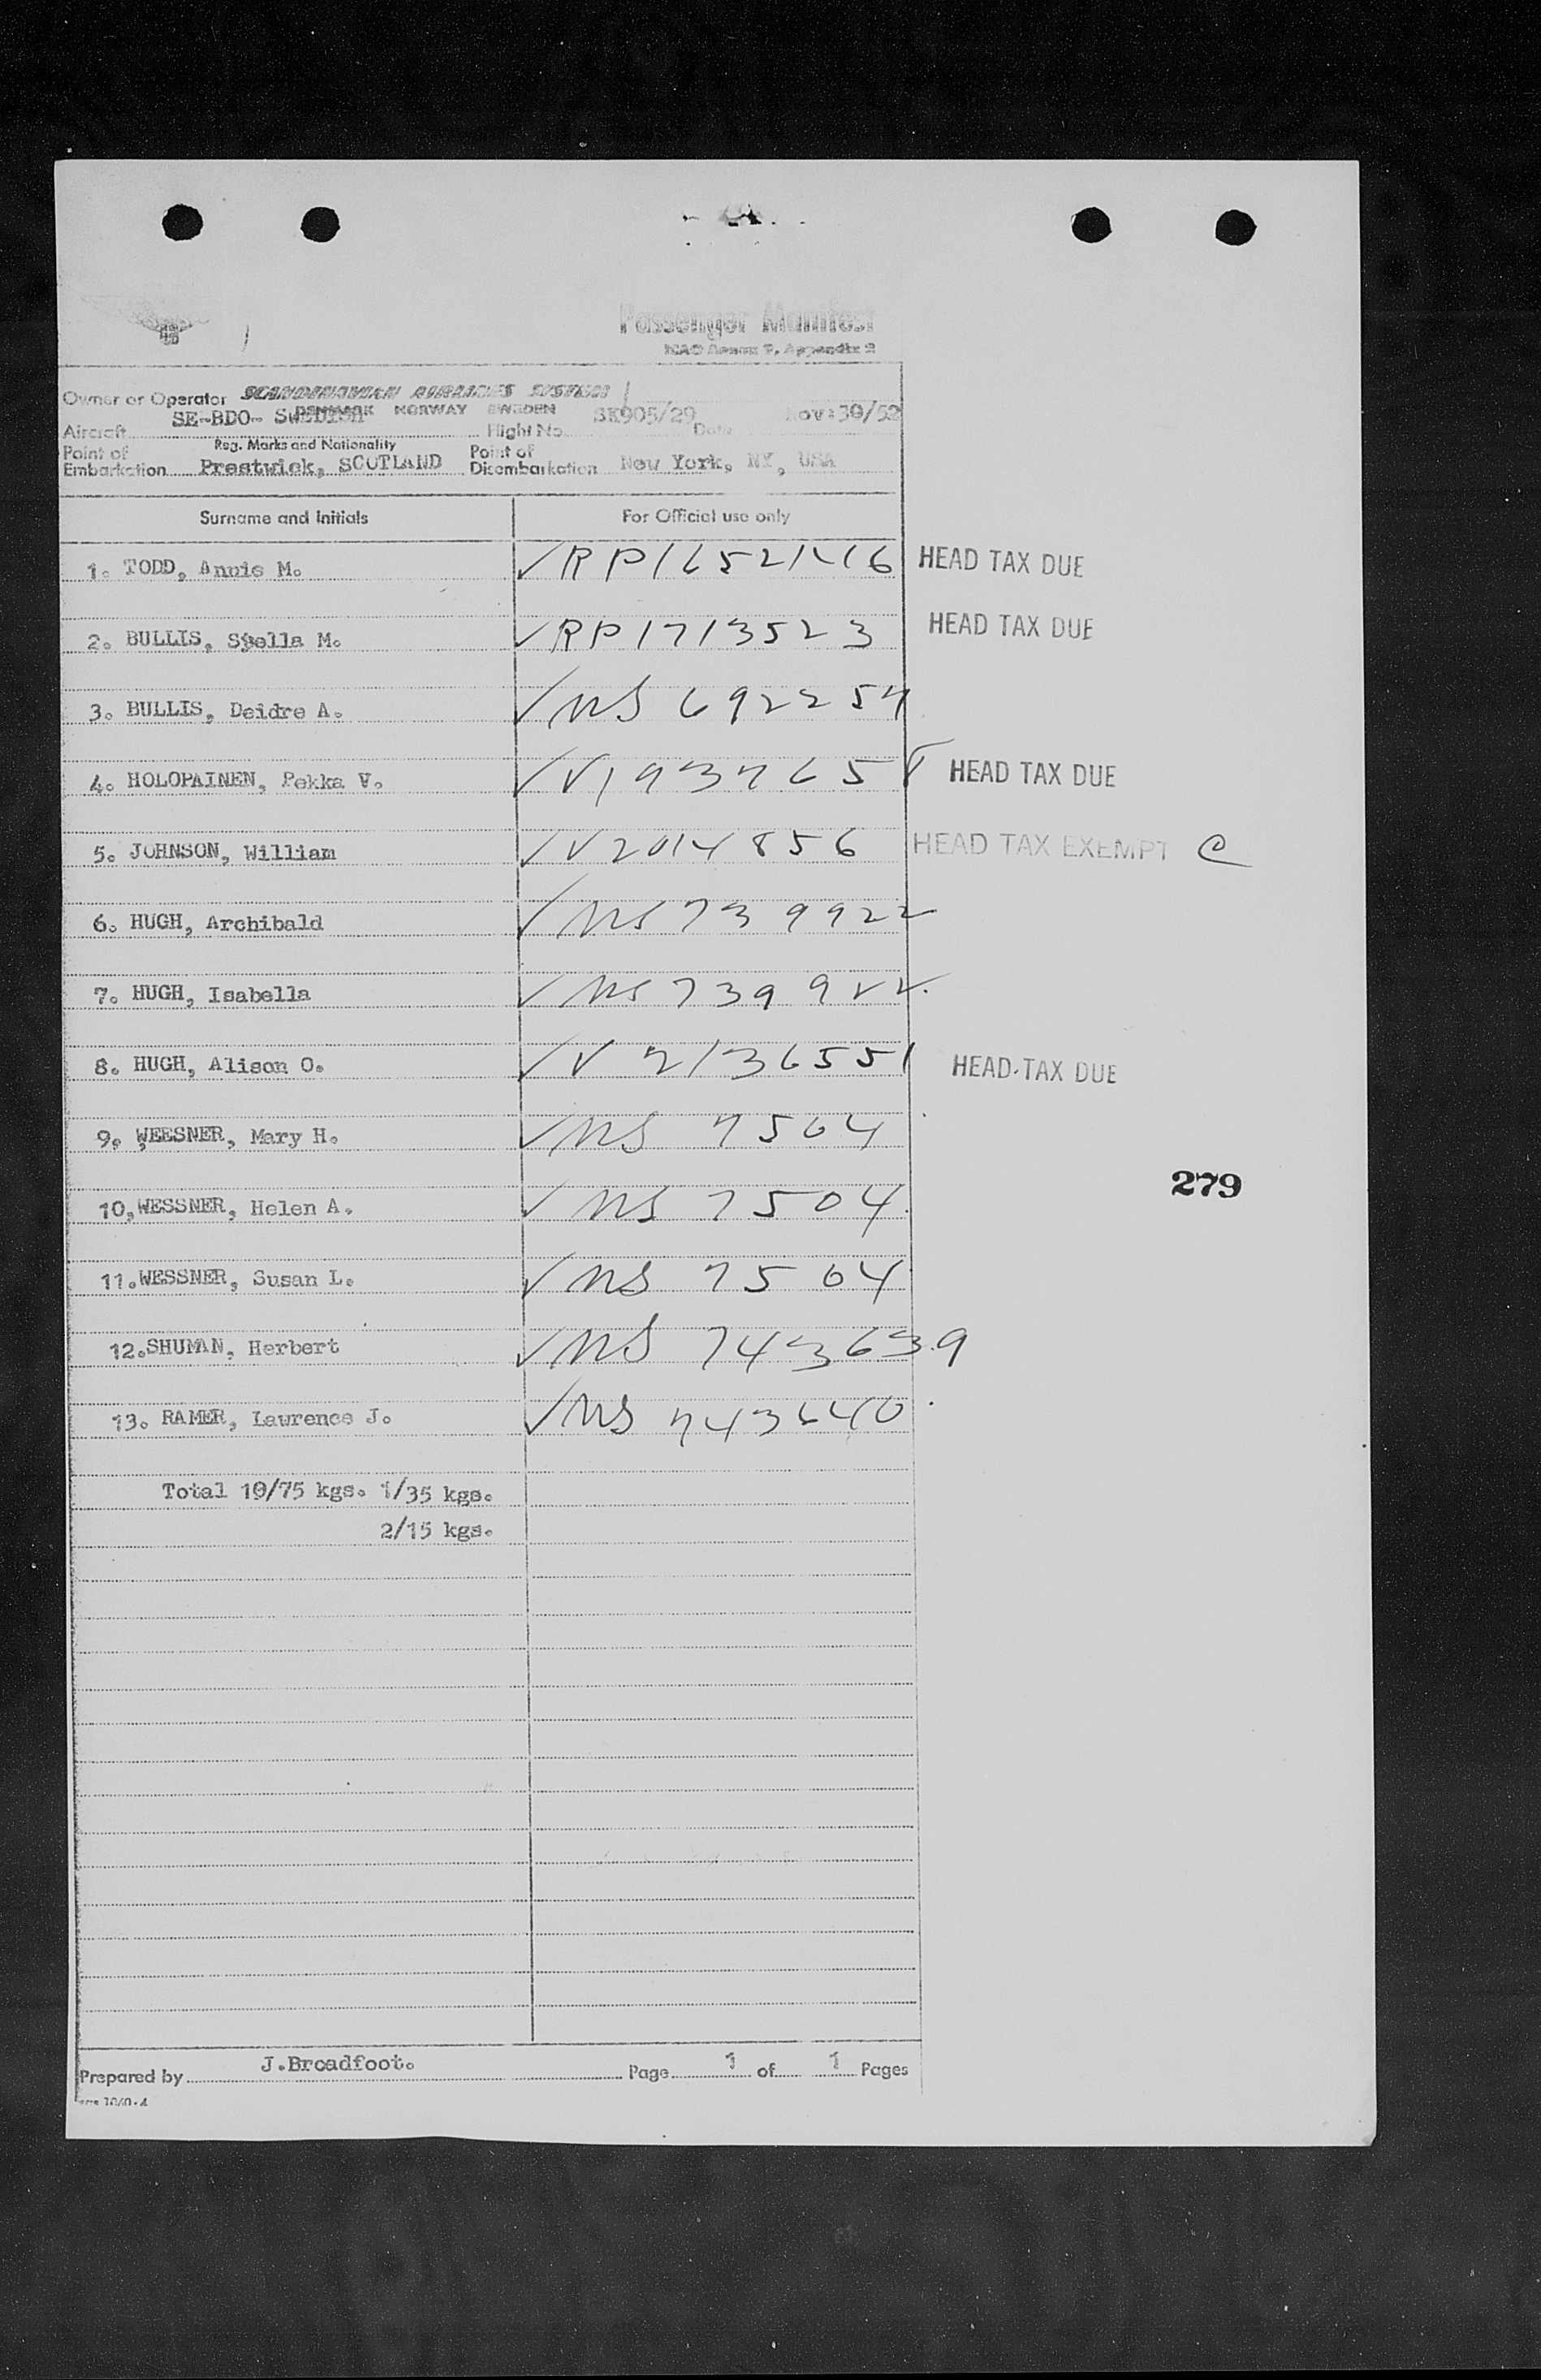 Passenger Manifest
ICAO Annex 9, Appendix 2
Owner or Operator SCANDINAVIAN AIRLINES SYSTEM
DENMARK NORWAY SWEDEN
Aircraft SE-BDO- SWEDISH Flight No. SK905/29 Date Nov:30/52
Reg. Marks and Nationality
Point of Embarkation Prestwick, SCOTLAND Point of Disembarkation New York, NY, USA
Surname and Initials For Official use only
1. TODD, Annie M. ✓ RP1652146 HEAD TAX DUE
2. BULLIS, Stella M. ✓ RP1713523 HEAD TAX DUE
3. BULLIS, Deidre A. ✓ NS 692254
4. HOLOPAINEN, Pekka V. ✓ HEAD TAX DUE
5. JOHNSON, William ✓ V2014856 HEAD TAX EXEMPT C
6. HUGH, Archibald ✓ NS 739922
7. HUGH, Isabella ✓ NS 739922
8. HUGH, Alison O. ✓ V 2136551 HEAD TAX DUE
9. WEESNER, Mary H. ✓ NS 7504
279
10. WESSNER, Helen A. ✓ NS 7504
11. WESSNER, Susan L. ✓ NS 7504
12. SHUMAN, Herbert ✓ NS 743639
13. RAMER, Lawrence J. ✓ NS 743640
Total 10/75 kgs. 1/35 kgs.
2/15 kgs.
Prepared by J.Broadfoot. Page 1 of 1 Pages